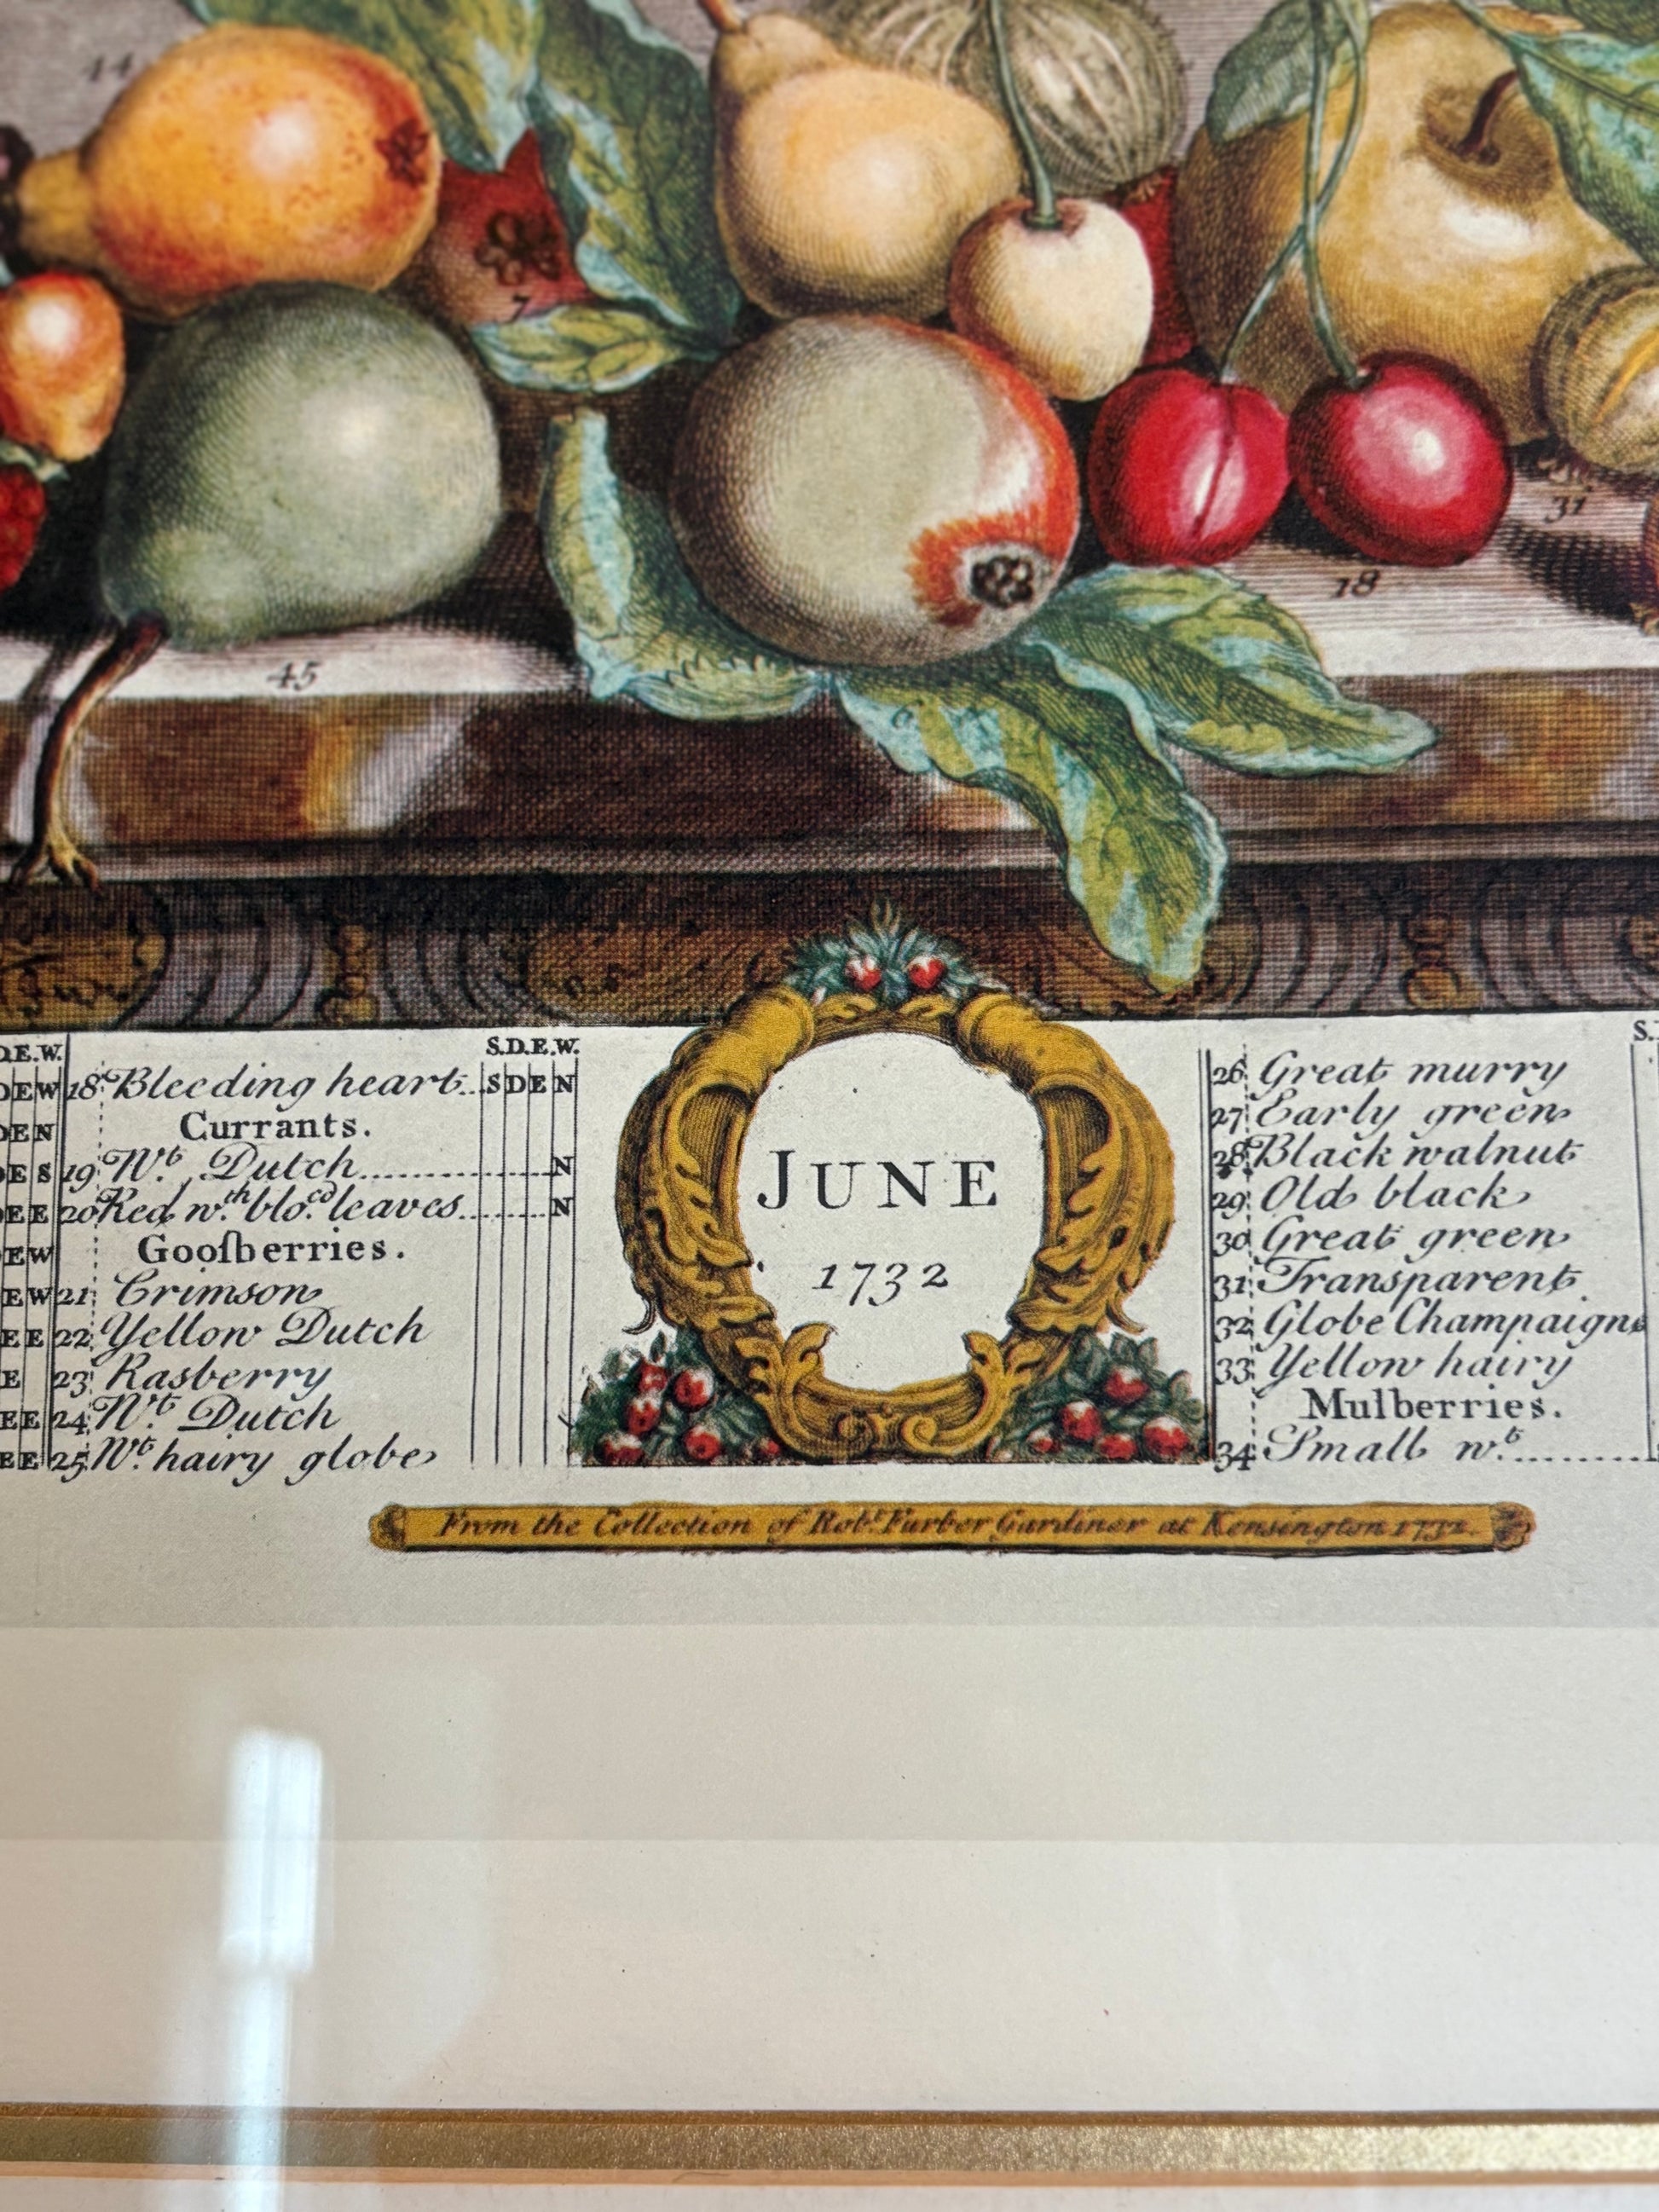 44
7
31
18
45
D.E.W.
DEW
DEN
DES
EEE
EW
EW
EE
E
EE
EE
S.D.E.W.
18 Bleeding heart... S D E N
Currants.
19 Wt. Dutch............ N
20 Red w.th blo.cd leaves...... N
Gooſberries.
21 Crimson
22 Yellow Dutch
23 Rasberry
24 Wt. Dutch
25 Wt. hairy globe
JUNE
1732
S.
26 Great murry
27 Early green
28 Black walnut
29 Old black
30 Great green
31 Transparent
32 Globe Champaigne
33 Yellow hairy
Mulberries.
34 Small wt.........
From the Collection of Robt. Furber Gardiner at Kensington 1732.